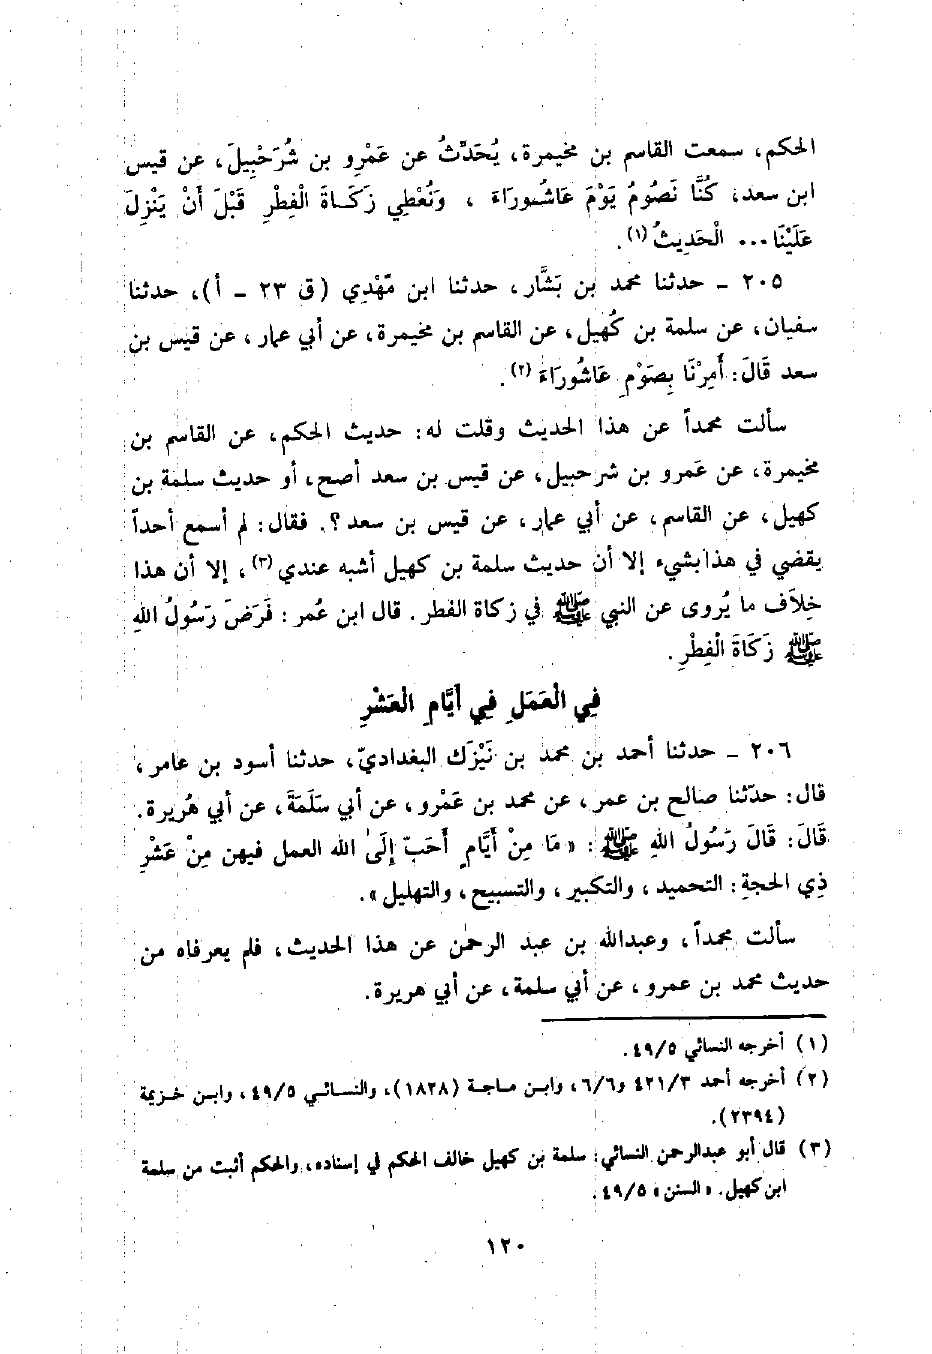 الحكم، سمعت القاسم بن مخيمرة، يُحَدِّثُ عن عَمْرِو بن شُرَحْبِيلَ، عن قيس
ابن سعد، كُنَّا نَصُومُ يَوْمَ عَاشُورَاءَ ، وَنُعْطِي زَكَاةَ الْفِطْرِ قَبْلَ أَنْ يَنْزِلَ
عَلَيْنَا... الْحَدِيثُ (١) .
٢٠٥ ـ حدثنا محمد بن بَشَّار، حدثنا ابن مّهْدِي (ق ٢٣ ـ أ)، حدثنا
سفيان، عن سلمة بن كُهَيل، عن القاسم بن مخيمرة، عن أبي عمار، عن قيس بن
سعد قَالَ: أُمِرْنَا بِصَوْمِ عَاشُورَاءَ (٢) .
سألت محمداً عن هذا الحديث وقلت له: حديث الحكم، عن القاسم بن
مخيمرة، عن عَمرو بن شرحبيل، عن قيس بن سعد أصح، أو حديث سلمة بن
كهيل، عن القاسم، عن أبي عمار، عن قيس بن سعد ؟. فقال: لم أسمع أحداً
يقضي في هذا بشيء إلا أن حديث سلمة بن كهيل أشبه عندي (٣) ، إلا أن هذا
خِلاَف ما يُروى عن النبي ﷺ في زكاة الفطر. قال ابن عُمر: فَرَضَ رَسُولُ اللهِ
ﷺ زَكَاةَ الْفِطْرِ.
فِي الْعَمَلِ فِي أَيَّامِ الْعَشْرِ
٢٠٦ ـ حدثنا أحمد بن محمد بن نَيْزَك البغداديّ، حدثنا أسود بن عامر،
قال: حدّثنا صالح بن عمر، عن محمد بن عَمْرو، عن أبي سَلَمَةَ، عن أبي هُريرة.
قَالَ: قَالَ رَسُولُ اللهِ ﷺ : «مَا مِنْ أَيَّامٍ أَحَبّ إِلَىٰ الله العمل فيهن مِنْ عَشْرِ
ذِي الحجةِ: التحميد، والتكبير، والتسبيح، والتهليل».
سألت محمداً، وعبدالله بن عبد الرحمٰن عن هذا الحديث، فلم يعرفاه من
حديث محمد بن عمرو، عن أبي سلمة، عن أبي هريرة.
(١) أخرجه النسائي ٤٩/٥.
(٢) أخرجه أحمد ٤٢١/٣ و٦/٦، وابن ماجة (١٨٢٨)، والنسائي ٤٩/٥، وابن خزيمة
(٢٣٩٤).
(٣) قال أبو عبدالرحمن النسائي: سلمة بن كهيل خالف الحكم في إسناده، والحكم أثبت من سلمة
ابن كهيل. «السنن» ٤٩/٥.
١٢٠